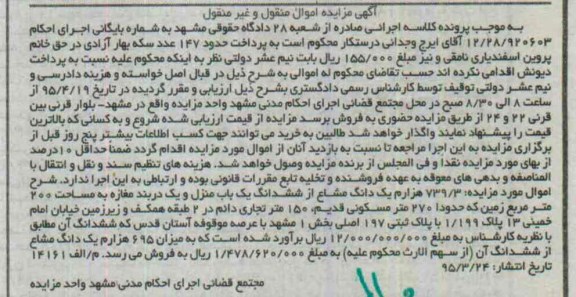 آگهی مزایده اموال منقول و غیر منقول
به موجب پرونده کلاسه اجرائی صادره از شعبه ۲۸ دادگاه حقوقی مشهد به شماره بایگانی اجرای احکام
۱۲/۲۸/۹۲۰۶۰۳ آقای ایرج وجدانی درستکار محکوم است به پرداخت حدود ۱۴۷ عدد سکه بهار آزادی در حق خانم
پروین اسفندیاری نامقی و نیز مبلغ ۱۵۵/۰۰۰ ریال بابت نیم عشر دولتی نظر به اینکه محکوم علیه نسبت به پرداخت
دیونش اقدامی نکرده اند حسب تقاضای محکوم له اموالی به شرح ذیل در قبال اصل خواسته و هزینه دادرسی و
نیم عشر دولتی توقیف توسط کارشناس رسمی دادگستری بشرح ذیل ارزیابی و مقرر گردیده در تاریخ ۹۵/۴/۱۹ از
ساعت ۸ الی ۸/۳۰ صبح در محل مجتمع قضائی اجرای احکام مدنی مشهد واحد مزایده واقع در مشهد- بلوار قرنی بین
قرنی ۲۲ و ۲۴ از طریق مزایده حضوری به فروش برسد مزایده از قیمت ارزیابی شده شروع و به کسانی که بالاترین
قیمت را پیشنهاد نمایند واگذار خواهد شد طالبین به خرید می توانند جهت کسب اطلاعات بیشتر پنج روز قبل از
برگزاری مزایده به این اجرا مراجعه تا نسبت به بازدید آنان از اموال مورد مزایده اقدام گردد ضمنا حداقل ۱۰درصد
از بهای مورد مزایده نقدا و فی المجلس از برنده مزایده وصول خواهد شد. هزینه های تنظیم سند و نقل و انتقال با
المناصفه و بدهی های معوقه به عهده فروشنده و تخلیه تابع مقررات قانونی بوده و ارتباطی به این اجرا ندارد. شرح
اموال مورد مزایده: ۷۳۹/۳ هزارم یک دانگ مشاع از ششدانگ یک باب منزل و یک دربند مغازه به مساحت ۲۰۰
متر مربع زمین که حدودا ۲۷۰ متر مسکونی قدیم، ۱۵۰ متر تجاری دائم در ۲ طبقه همکف و زیرزمین خیابان امام
خمینی ۱۳ پلاک ۱/۱۹۹ با پلاک ثبتی ۱۹۷ اصلی بخش ۱ مشهد با عرصه موقوفه آستان قدس که ششدانگ آن مطابق
با نظریه کارشناس به مبلغ ۱۲/۰۰۰/۰۰۰/۰۰۰ ریال برآورد شده است که به میزان ۶۹۵ هزارم یک دانگ مشاع
از ششدانگ آن (از سهم الارث محکوم علیه) به مبلغ ۱/۴۷۸/۶۲۰/۰۰۰ ریال به فروش می رسد. م/الف ۱۴۱۶۱
تاریخ انتشار: ۹۵/۳/۲۴
مجتمع قضائی اجرای احکام مدنی مشهد واحد مزایده